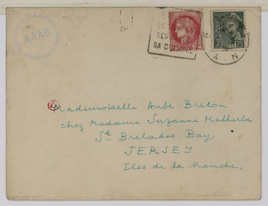 AAAB
SA CUISINE
Mademoiselle Aube Breton
chez Madame Suzanne Malherbe
St Brelades Bay
JERSEY
Iles de la Manche.